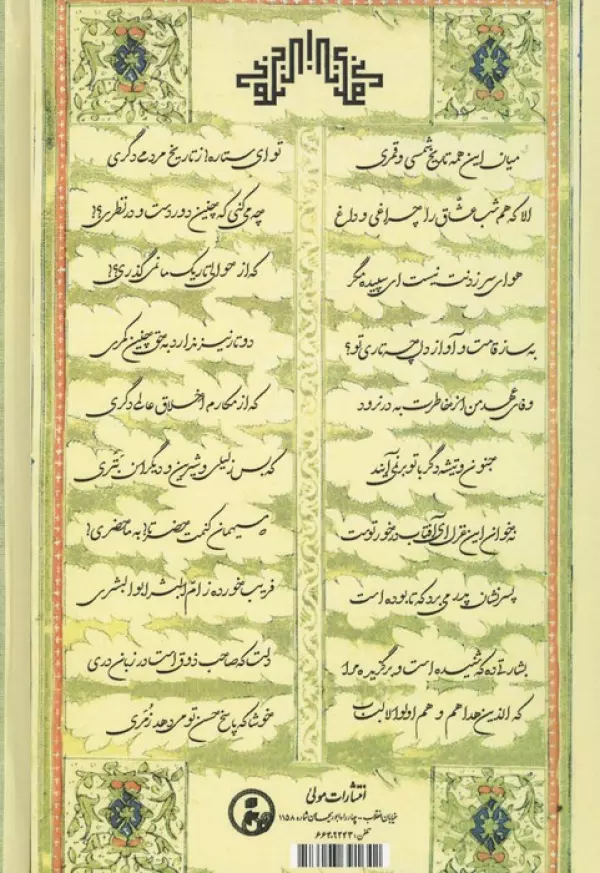 میان این همه تاریخ شمسی و قمری تو ای ستاره! از تاریخ مردم دگری
الا که هم شب عشّاق را چراغی و داغ چه می کنی که چنین دوردست و در نظری؟!
هوای سر زدنت نیست ای سپیده مگر که از حوالی تاریک ما نمی گذری؟!
به ساز قامت و آواز دل چه تاری تو؟ دو تار نیز ندارد به حق چنین کمری
وفای عهد من از خاطرت به در نرود که از مکارم اخلاق عالمی دگری
جنون و تیشه دگر با تو برنمی آیند که بس ز لیلی و شیرین و دیگران بَتَری
نه خوان این غزل ای آفتاب درخور توست چه میهمان کنمت حضرتا! به ماحضری!
پسر نشان پدر می برد که تا بوده است فریب خورده ز امّ البشر ابوالبشری
که شنیده است و برگزیده مرا دلت که صاحب ذوق است در زبان دری
که الذین هداهم و هم اولوالالباب خوشا که پاسخ حسن تو می دهد زُمَری
انتشارات مولی
خیابان انقلاب - چهارراه ابوریحان شماره ۱۱۵۸
تلفن: ۶۶۴۰۹۲۴۳